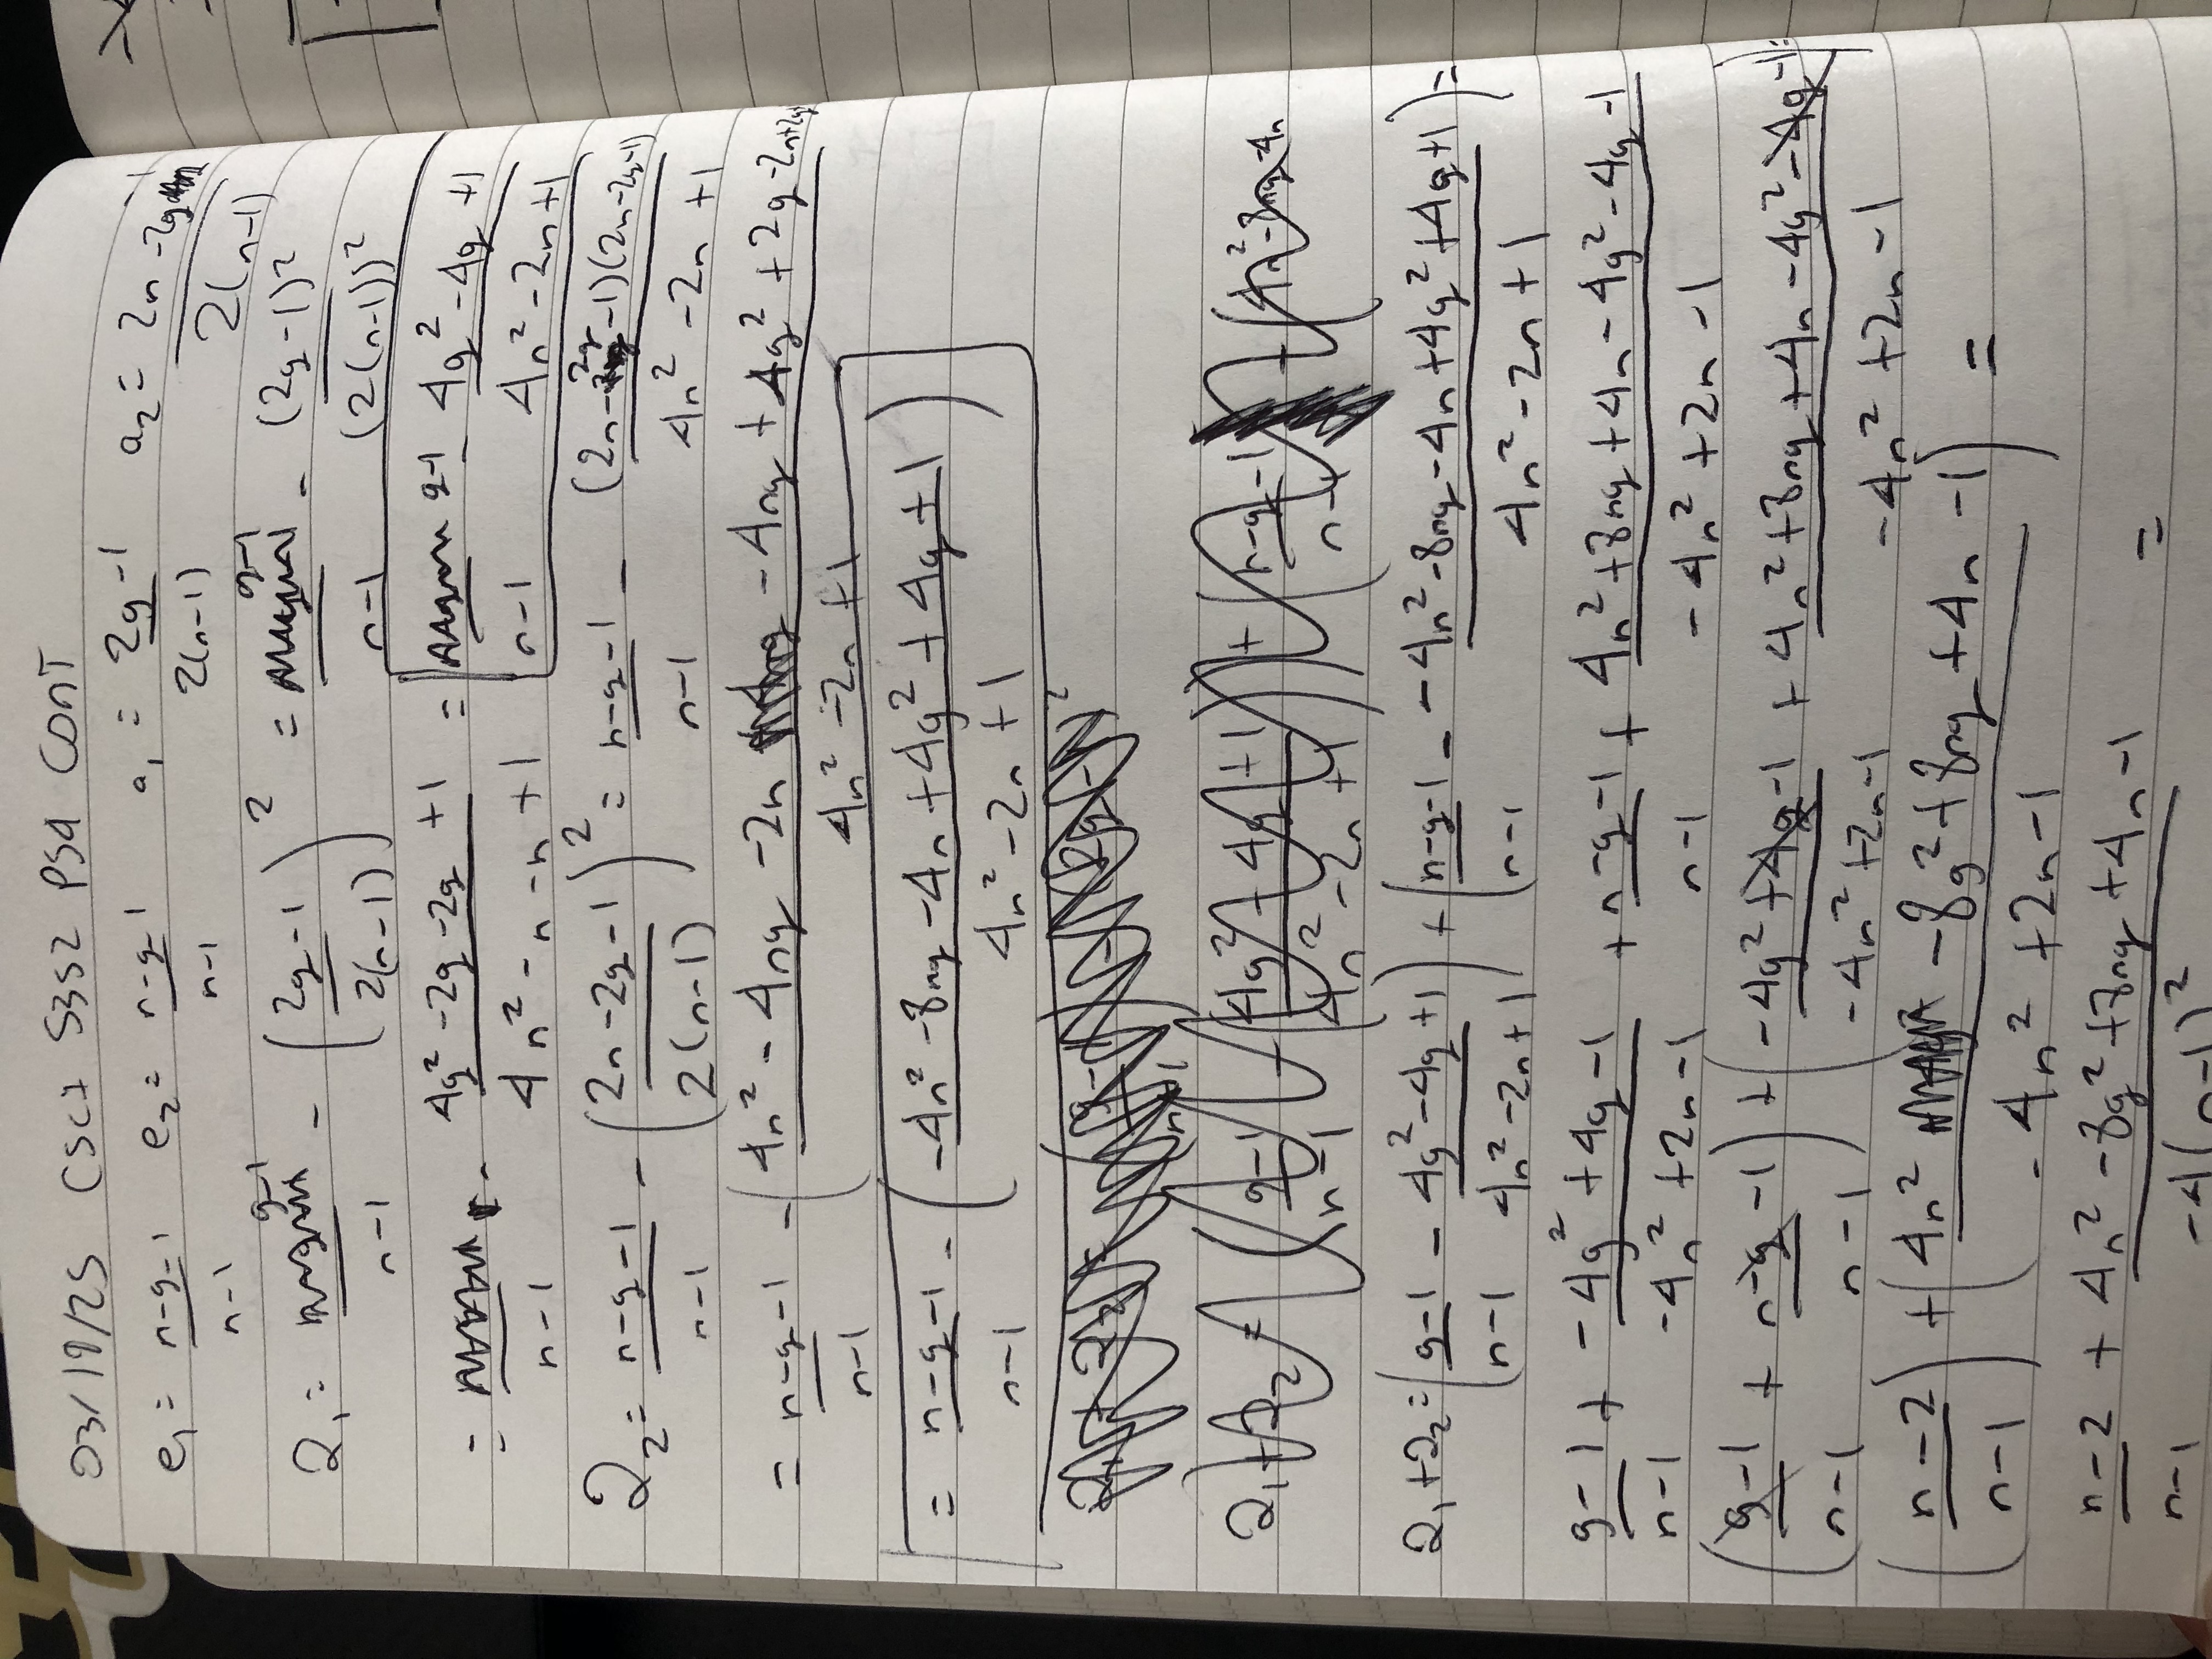 03/19/25 CSCI 5352 PS4 CONT
e₁ = (n-g-1)/(n-1) e₂ = (n-g-1)/(n-1) a₁ = (2g-1)/(2(n-1)) a₂ = (2n-2g-1)/(2(n-1))
Q₁ = (g-1)/(n-1) - ((2g-1)/(2(n-1)))² = (g-1)/(n-1) - (2g-1)²/(2(n-1))²
= /(n-1) - (4g²-2g-2g+1)/(4n²-n-n+1) = (g-1)/(n-1) - (4g²-4g+1)/(4n²-2n+1)
Q₂ = (n-g-1)/(n-1) - ((2n-2g-1)/(2(n-1)))² = (n-g-1)/(n-1) - (2n-2g-1)(2n-2g-1)/(4n²-2n+1)
= (n-g-1)/(n-1) - ((4n²-4ng-2n-4ng+4g²+2g-2n+2g+1)/(4n²-2n+1)
= (n-g-1)/(n-1) - ((-4n²-8ng-4n+4g²+4g+1)/(4n²-2n+1))
Q₁+Q₂ = ((g-1)/(n-1) - ((4g²-4g+1)/(4n²-2n+1))) + ((n-g-1)/(n-1) - (4n²-8ng-4n
Q₁+Q₂ = ((g-1)/(n-1) - (4g²-4g+1)/(4n²-2n+1)) + ((n-g-1)/(n-1) - (-4n²-8ng-4n+4g²+4g+1)/(4n²-2n+1)) =
(g-1)/(n-1) + (-4g²+4g-1)/(-4n²+2n-1) + (n-g-1)/(n-1) + (4n²+8ng+4n-4g²-4g-1)/(-4n²+2n-1)
((g-1)/(n-1) + (n-g-1)/(n-1)) + ((-4g²+4g-1)/(-4n²+2n-1) + (4n²+8ng+4n-4g²-4g-1)/(-4n²+2n-1)) =
((n-2)/(n-1)) + ((4n²-8g²+8ng+4n-1)/(-4n²+2n-1)) =
(n-2)/(n-1) + (4n²-8g²+8ng+4n-1)/(-4(n-1)²) =